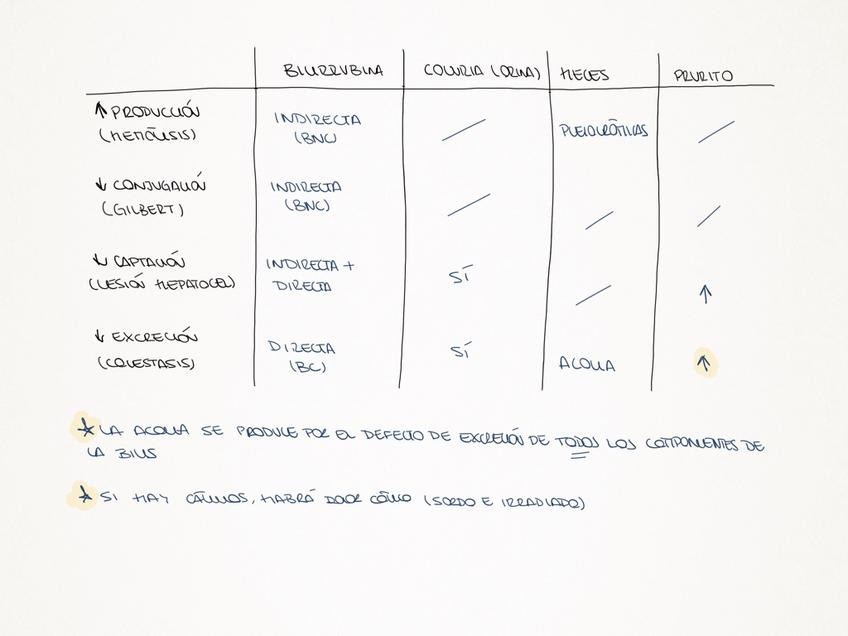 BILIRRUBINA COLURIA (ORINA) HECES PRURITO
↑ PRODUCCIÓN INDIRECTA / PLEIOCRÓTICAS /
(HEMÓLISIS) (BNC)
↓ CONJUGACIÓN INDIRECTA / / /
(GILBERT) (BNC)
↓ CAPTACIÓN INDIRECTA + SÍ / ↑
(LESIÓN HEPATOCEL) DIRECTA
↓ EXCRECIÓN DIRECTA SÍ ACOLIA ↑
(COLESTASIS) (BC)
* LA ACOLIA SE PRODUCE POR EL DEFECTO DE EXCRECIÓN DE TODOS LOS COMPONENTES DE
LA BILIS
* SI HAY CÁLCULOS, HABRÁ DOLOR CÓLICO (SORDO E IRRADIADO)